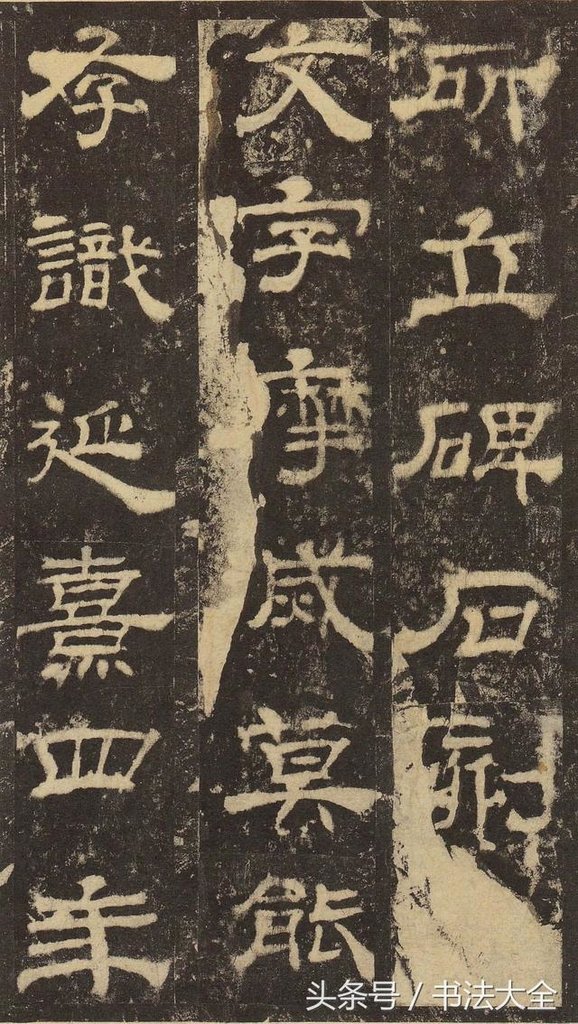 所立碑石刻
文字摩烕莫能
存識延熹四年
头条号 / 书法大全